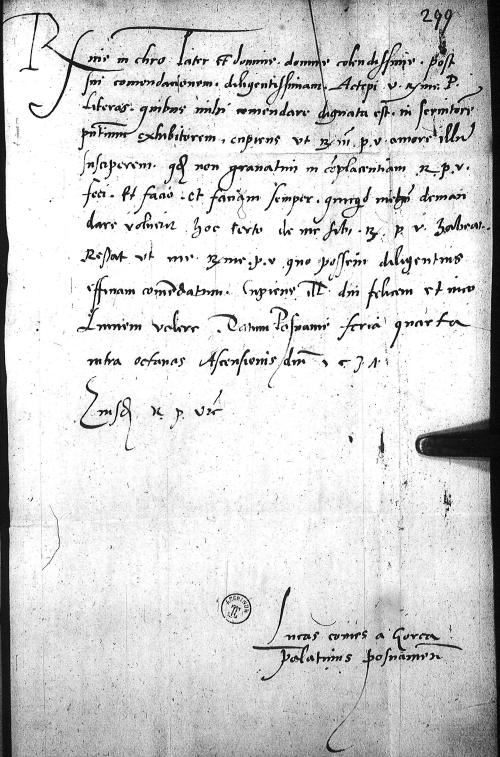 299
R me in chro pater et domine domine colendissime. post
sui comendationem diligentissimam. Accepi v. R. me. P.
literas. quibus mihi comendare dignata est in servitore
pntium exhibitorem, cupiens ut R. in. p. v. amore illu
susciperem. qd non gravatim in coplacentiam R. p. v.
feci. Et facio. et faciam semper. quicqd mihi deman
dare voluerit hoc certo de me sibi. R. p. v. habeat.
Restat ut me R. me. p. v. quo possem diligentius
efficiam comendatum. Cupiens ill. diu felicem et inco
lumem valere. Datum Posnanie feria quarta
infra octavas Ascensionis dni
Eiusd R. p. vre
ARCHIWUM
Lucas comes a Gorca
palatinus posnanien